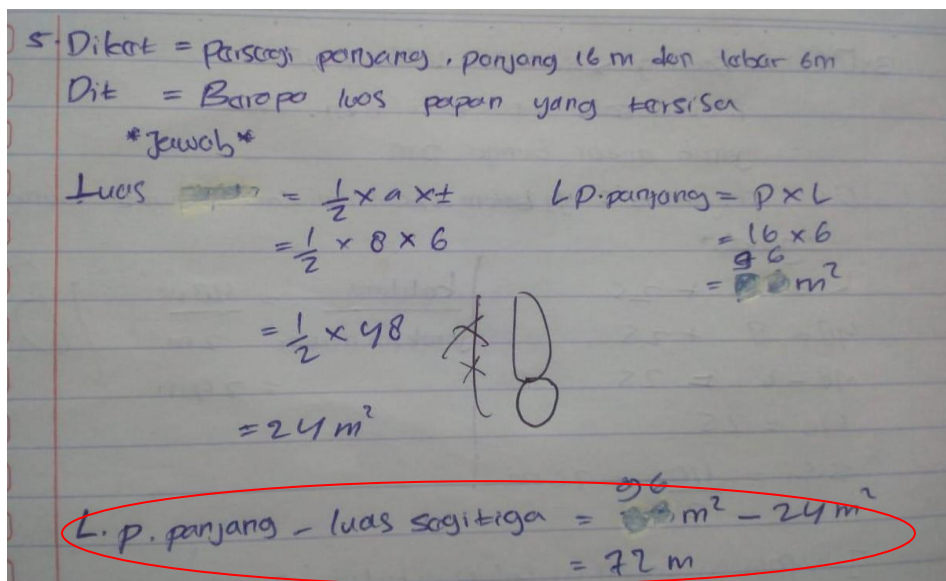 5. Diket = Parsegi panjang, panjang 16 m dan labar 6m
Dit = Barapa luas papan yang tarsisa
*Jawab*
Luas = 1/2 x a x t
= 1/2 x 8 x 6
= 1/2 x 48
= 24 m²
L p. panjang = P x L
= 16 x 6
= 96 m²
L. p. panjang - luas sagitiga = 96 m² - 24 m²
= 72 m